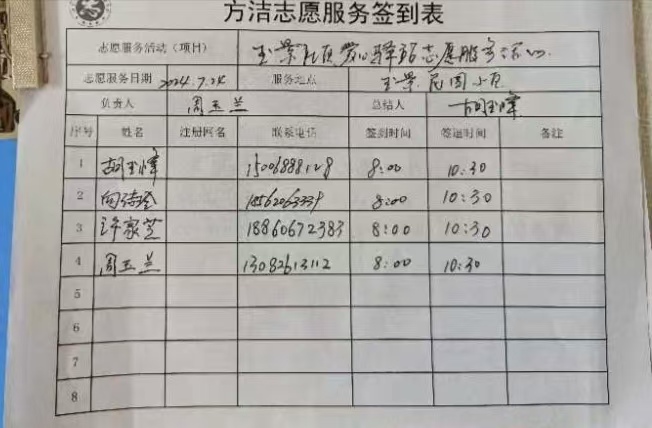 方洁志愿服务签到表
志愿服务活动（项目） 玉景社区爱心驿站志愿服务活动
志愿服务日期 2024.7.24 服务地点 玉景花园小区
负责人 周玉兰 总结人 胡玉峰
序号 姓名 注册网名 联系电话 签到时间 签退时间 备注
1 胡玉峰 15006888128 8:00 10:30
2 8:00 10:30
3 许家芝 18860672383 8:00 10:30
4 周玉兰 13082613112 8:00 10:30
5
6
7
8